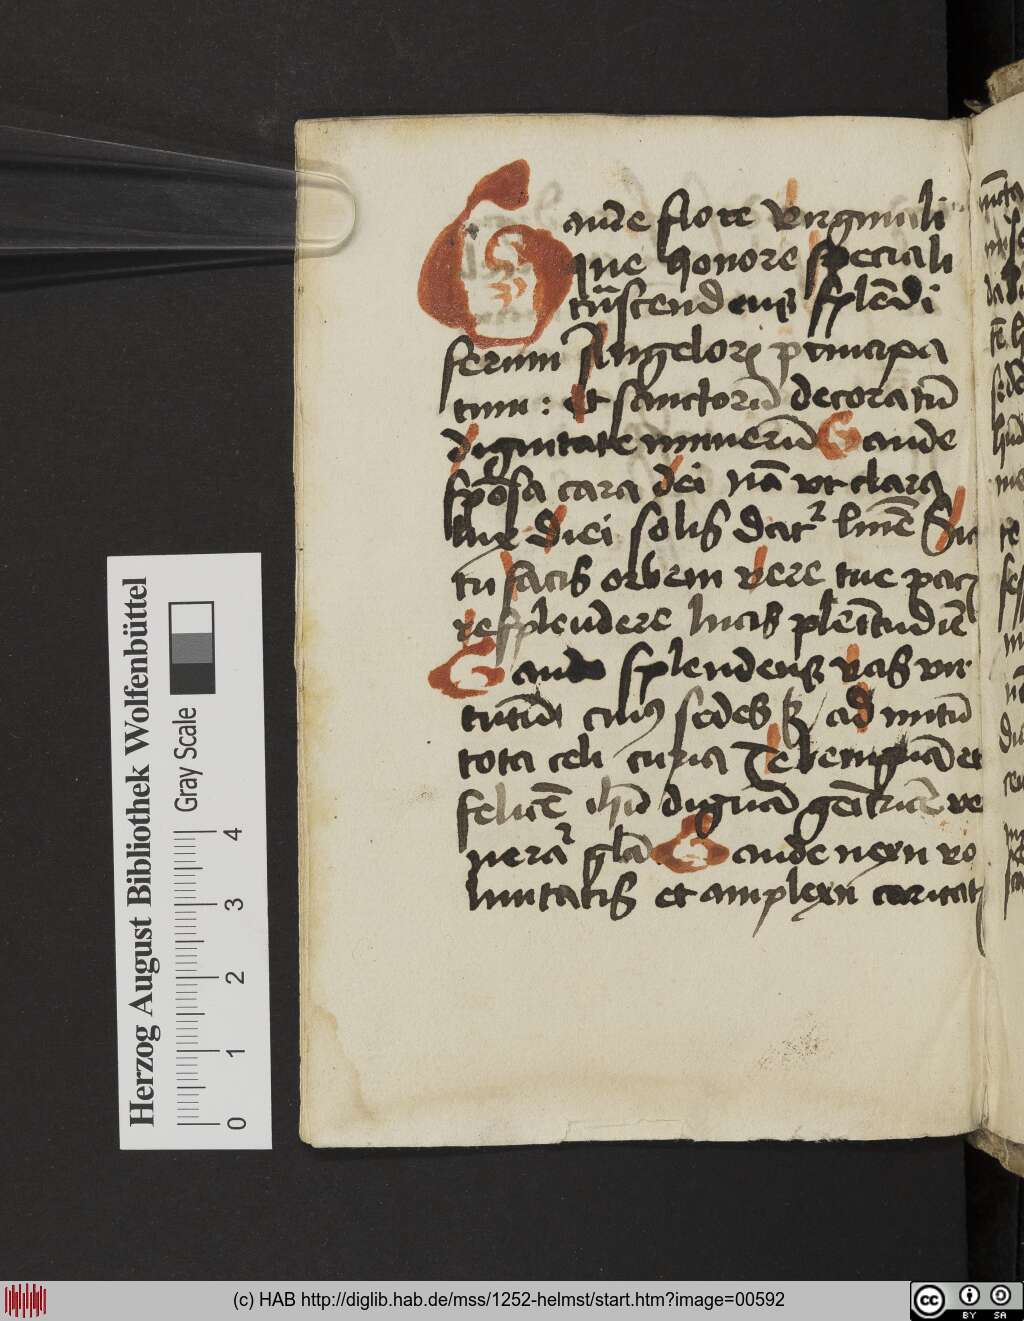 Gaude flore virginali
que honore speciali
tūscendens splēdi
ferum Angeloꝝ principa
tum : et sanctorū decoratū
dignitate munerū Gaude
spōsa cara dei nā ut clara
lux diei solis datᷣ lumē Sic
tu facis orbem vere tue pacꝭ
resplendere lucis plēitudiē
Gaude splendens vas vir
tutū cuiꝰ sedes ꝫ ad nutū
tota celi curia Te benignā et
felicē ihū dignā genitricē ve
nerāᷣ glā Gaude nexu vo
luntatis et amplexu caritatꝭ
Herzog August Bibliothek Wolfenbüttel
Gray Scale
0 1 2 3 4
(c) HAB http://diglib.hab.de/mss/1252-helmst/start.htm?image=00592
cc BY SA